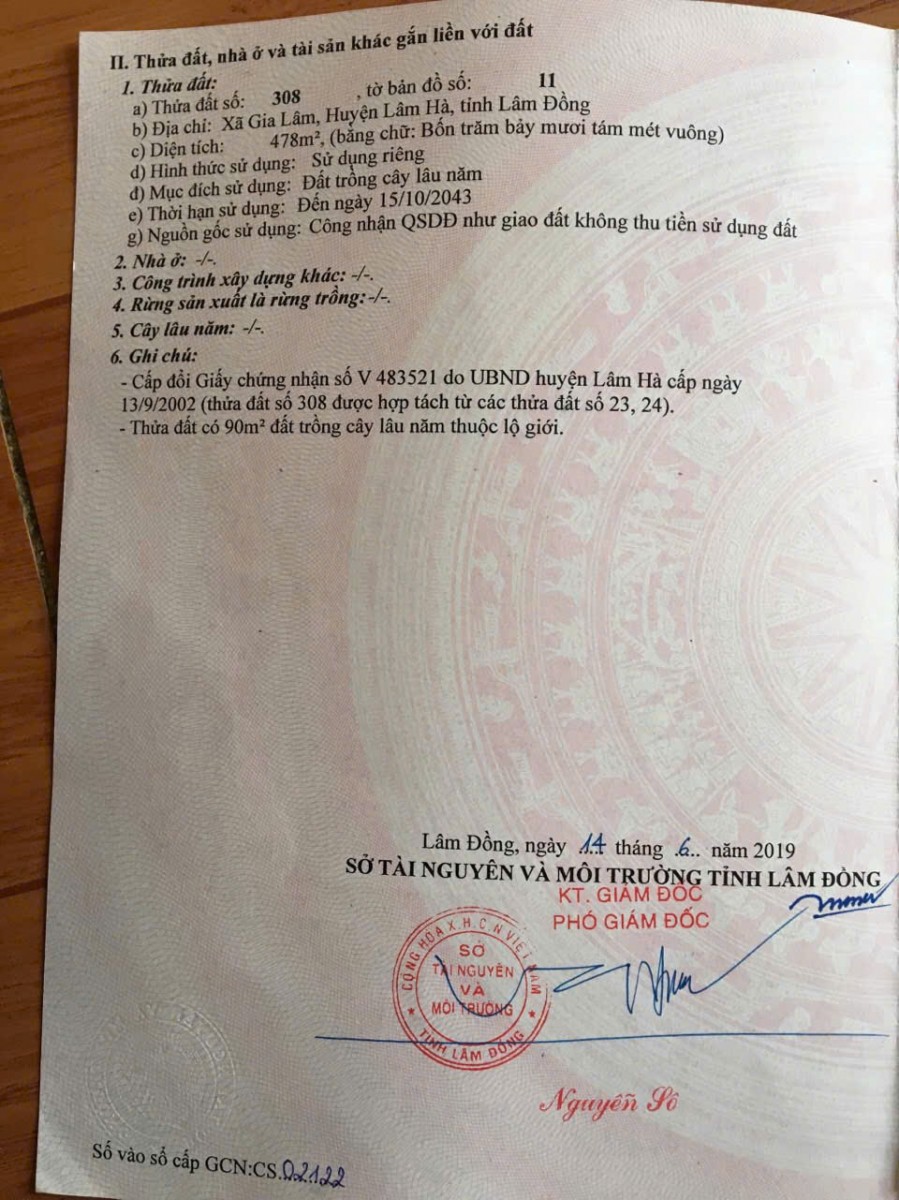 II. Thửa đất, nhà ở và tài sản khác gắn liền với đất
1. Thửa đất:
a) Thửa đất số: 308 , tờ bản đồ số: 11
b) Địa chỉ: Xã Gia Lâm, Huyện Lâm Hà, tỉnh Lâm Đồng
c) Diện tích: 478m², (bằng chữ: Bốn trăm bảy mươi tám mét vuông)
d) Hình thức sử dụng: Sử dụng riêng
đ) Mục đích sử dụng: Đất trồng cây lâu năm
e) Thời hạn sử dụng: Đến ngày 15/10/2043
g) Nguồn gốc sử dụng: Công nhận QSDĐ như giao đất không thu tiền sử dụng đất
2. Nhà ở: -/-.
3. Công trình xây dựng khác: -/-.
4. Rừng sản xuất là rừng trồng: -/-.
5. Cây lâu năm: -/-.
6. Ghi chú:
- Cấp đổi Giấy chứng nhận số V 483521 do UBND huyện Lâm Hà cấp ngày
13/9/2002 (thửa đất số 308 được hợp tách từ các thửa đất số 23, 24).
- Thửa đất có 90m² đất trồng cây lâu năm thuộc lộ giới.
Lâm Đồng, ngày 14 tháng 6 năm 2019
SỞ TÀI NGUYÊN VÀ MÔI TRƯỜNG TỈNH LÂM ĐỒNG
KT. GIÁM ĐỐC
PHÓ GIÁM ĐỐC
CỘNG HÒA X.H.C.N VIỆT NAM
SỞ
TÀI NGUYÊN
VÀ
MÔI TRƯỜNG
TỈNH LÂM ĐỒNG
Nguyễn Sô
Số vào sổ cấp GCN:CS.02122